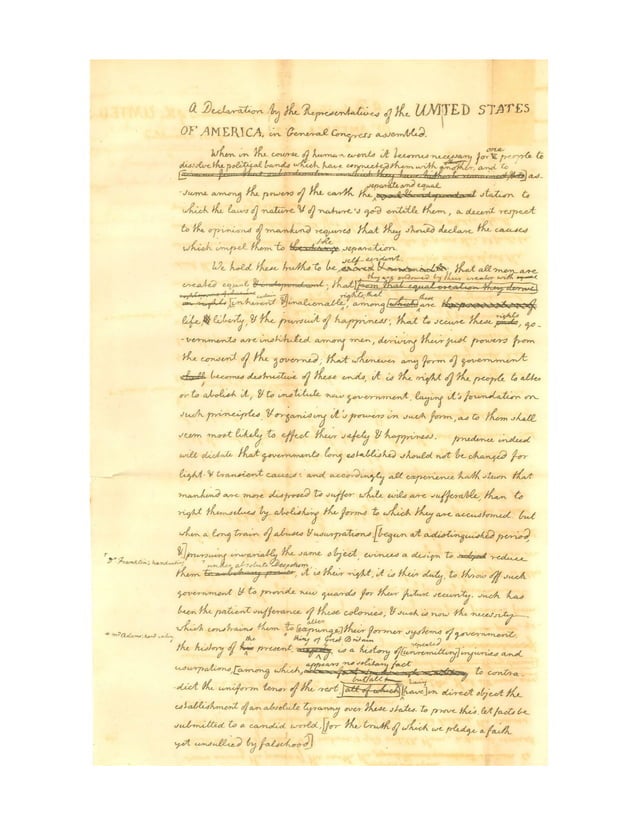 A Declaration by the Representatives of the UNITED STATES
OF AMERICA, in General Congress assembled.
When in the course of human events it becomes necessary for one people to
dissolve the political bands which have connected them with another, and to as-
-sume among the powers of the earth the separate and equal station to
which the laws of nature & of nature's god entitle them, a decent respect
to the opinions of mankind requires that they should declare the causes
which impel them to the separation.
We hold these truths to be self-evident, that all men are
created equal, that they are endowed by their creator with
[inherent &] inalienable rights; that among these are
life, & liberty, & the pursuit of happiness; that to secure these rights, go-
-vernments are instituted among men, deriving their just powers from
the consent of the governed; that whenever any form of government
becomes destructive of these ends, it is the right of the people to alter
or to abolish it, & to institute new government, laying it's foundation on
such principles & organising it's powers in such form, as to them shall
seem most likely to effect their safety & happiness. prudence indeed
will dictate that governments long established should not be changed for
light & transient causes: and accordingly all experience hath shewn that
mankind are more disposed to suffer while evils are sufferable, than to
right themselves by abolishing the forms to which they are accustomed. but
when a long train of abuses & usurpations, [begun at a distinguished period,
&] pursuing invariably the same object, evinces a design to reduce
Dr Franklin's handwriting
them under absolute Despotism, it is their right, it is their duty, to throw off such
government & to provide new guards for their future security. such has
been the patient sufferance of these colonies, & such is now the necessity
which constrains them to alter [expunge] their former systems of government.
Mr Adams' handwriting
the history of the present king of Great Britain is a history of repeated [unremitting] injuries and
usurpations, [among which, appears no solitary fact to contra-
-dict the uniform tenor of the rest, but all have [all of which] [have] in direct object the
establishment of an absolute tyranny over these states. to prove this, let facts be
submitted to a candid world, [for the truth of which we pledge a faith
yet unsullied by falsehood]